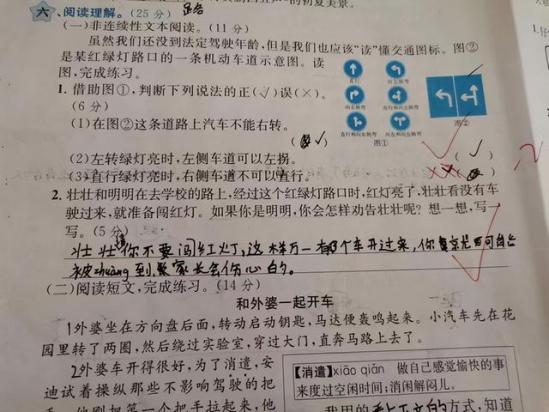 路
的初夏美景。
六、阅读理解。(25分)
(一)非连续性文本阅读。(11分)
虽然我们还没到法定驾驶年龄,但是我们也应该“读”懂交通图标。图②
是某红绿灯路口的一条机动车道示意图。读
图,完成练习。
1. 借助图①,判断下列说法的正(√)误(×)。
(6分)
直行
向左转弯
向右转弯
直行和向左转弯
直行和向右转弯
向左和向右转弯
图①
图②
(1)在图②这条道路上汽车不能右转。
(√)
(2)左转绿灯亮时,左侧车道可以左拐。
(√)
(3)直行绿灯亮时,右侧车道不可以直行。
2. 壮壮和明明在去学校的路上,经过这个红绿灯路口时,红灯亮了,壮壮看没有车
驶过来,就准备闯红灯。如果你是明明,你会怎样劝告壮壮呢?想一想,写一
写。(5分)
壮壮你不要闯红灯,这样万一有个车开过来,你
被chuang到,家长会伤心的。
(二)阅读短文,完成练习。(14分)
和外婆一起开车
1外婆坐在方向盘后面,转动启动钥匙,马达便轰鸣起来。小汽车先在花
园里转了两圈,然后绕过实验室,穿过大门,直奔马路上去了。
2外婆车开得很好,为了消遣,安
迪试着操纵那些不影响驾驶的把
手。他刚把第一个把手拉起来,他
【消遣】xiāo qiǎn 做自己感觉愉快的事
来度过空闲时间;消闲解闷儿。
的方式,知道